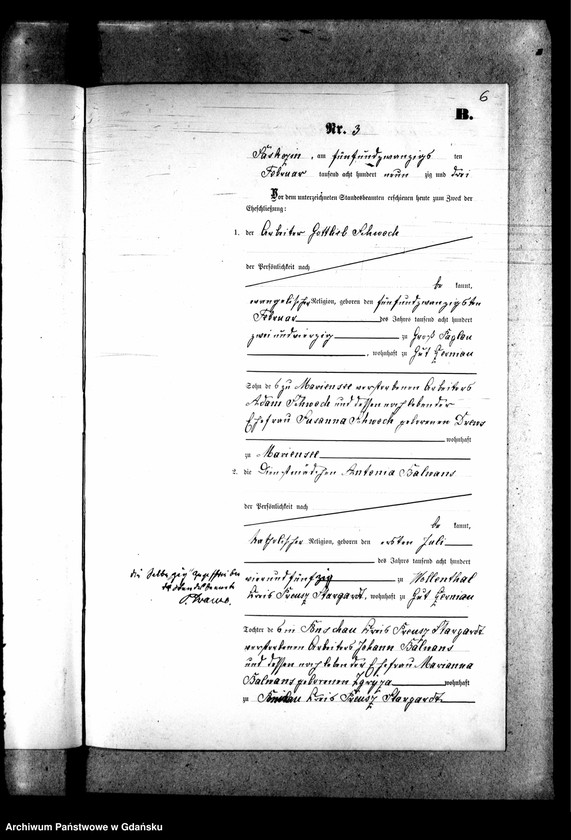 6
B.
Nr. 3
am fünfundzwanzigsten
Februar tausend acht hundert neunzig und drei
Vor dem unterzeichneten Standesbeamten erschienen heute zum Zweck der
Eheschließung:
1. der Arbeiter Gottlieb Schwech
der Persönlichkeit nach
bekannt,
evangelischer Religion, geboren den fünfundzwanzigsten
Februar des Jahres tausend acht hundert
zweiundvierzig zu Groß
, wohnhaft zu Gut
Sohn des zu Mariensee verstorbenen Arbeiters
Adam Schwech und dessen nachlebender
Ehefrau Susanna Schwech geborenen Drews
wohnhaft
zu Mariensee
2. die Dienstmädchen Antonia Balwans
der Persönlichkeit nach
bekannt,
katholischer Religion, geboren den ersten Juli
des Jahres tausend acht hundert
vierundfünfzig zu Wollenthal
Kreis Preuß Stargardt, wohnhaft zu Gut
Tochter des in Kreis Preuß Stargardt
verstorbenen Arbeiters Johann Balwans
und dessen nachlebender Ehefrau Marianna
Balwans geborenen wohnhaft
zu Kreis Preuß Stargardt
Archiwum Państwowe w Gdańsku